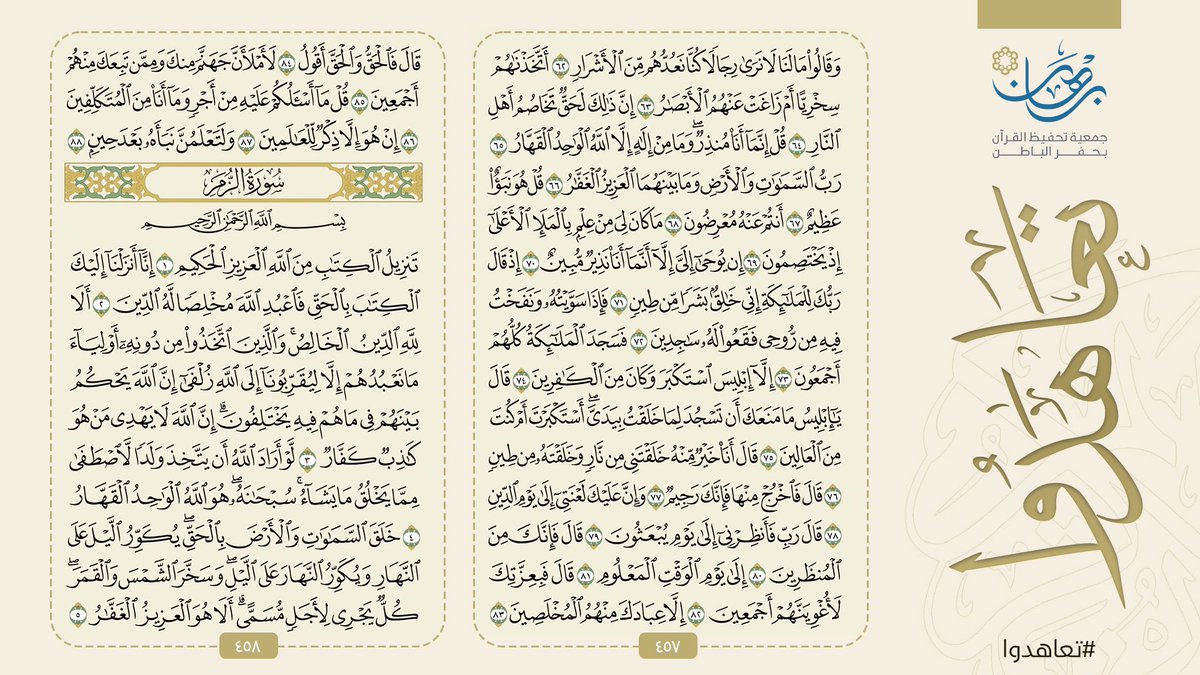 برهان
جمعية تحفيظ القرآن
بحفر الباطن
تعاهدوا
#تعاهدوا
وَقَالُوا۟ مَا لَنَا لَا نَرَىٰ رِجَالًا كُنَّا نَعُدُّهُم مِّنَ ٱلْأَشْرَارِ ٦٢ أَتَّخَذْنَٰهُمْ
سِخْرِيًّا أَمْ زَاغَتْ عَنْهُمُ ٱلْأَبْصَٰرُ ٦٣ إِنَّ ذَٰلِكَ لَحَقٌّ تَخَاصُمُ أَهْلِ
ٱلنَّارِ ٦٤ قُلْ إِنَّمَآ أَنَا۠ مُنذِرٌ ۖ وَمَا مِنْ إِلَٰهٍ إِلَّا ٱللَّهُ ٱلْوَٰحِدُ ٱلْقَهَّارُ ٦٥
رَبُّ ٱلسَّمَٰوَٰتِ وَٱلْأَرْضِ وَمَا بَيْنَهُمَا ٱلْعَزِيزُ ٱلْغَفَّٰرُ ٦٦ قُلْ هُوَ نَبَؤٌا۟
عَظِيمٌ ٦٧ أَنتُمْ عَنْهُ مُعْرِضُونَ ٦٨ مَا كَانَ لِىَ مِنْ عِلْمٍۭ بِٱلْمَلَإِ ٱلْأَعْلَىٰٓ
إِذْ يَخْتَصِمُونَ ٦٩ إِن يُوحَىٰٓ إِلَىَّ إِلَّآ أَنَّمَآ أَنَا۠ نَذِيرٌ مُّبِينٌ ٧٠ إِذْ قَالَ
رَبُّكَ لِلْمَلَٰٓئِكَةِ إِنِّى خَٰلِقٌۢ بَشَرًا مِّن طِينٍ ٧١ فَإِذَا سَوَّيْتُهُۥ وَنَفَخْتُ
فِيهِ مِن رُّوحِى فَقَعُوا۟ لَهُۥ سَٰجِدِينَ ٧٢ فَسَجَدَ ٱلْمَلَٰٓئِكَةُ كُلُّهُمْ
أَجْمَعُونَ ٧٣ إِلَّآ إِبْلِيسَ ٱسْتَكْبَرَ وَكَانَ مِنَ ٱلْكَٰفِرِينَ ٧٤ قَالَ
يَٰٓإِبْلِيسُ مَا مَنَعَكَ أَن تَسْجُدَ لِمَا خَلَقْتُ بِيَدَىَّ ۖ أَسْتَكْبَرْتَ أَمْ كُنتَ
مِنَ ٱلْعَالِينَ ٧٥ قَالَ أَنَا۠ خَيْرٌ مِّنْهُ خَلَقْتَنِى مِن نَّارٍ وَخَلَقْتَهُۥ مِن طِينٍ
٧٦ قَالَ فَٱخْرُجْ مِنْهَا فَإِنَّكَ رَجِيمٌ ٧٧ وَإِنَّ عَلَيْكَ لَعْنَتِىٓ إِلَىٰ يَوْمِ ٱلدِّينِ
٧٨ قَالَ رَبِّ فَأَنظِرْنِىٓ إِلَىٰ يَوْمِ يُبْعَثُونَ ٧٩ قَالَ فَإِنَّكَ مِنَ
ٱلْمُنظَرِينَ ٨٠ إِلَىٰ يَوْمِ ٱلْوَقْتِ ٱلْمَعْلُومِ ٨١ قَالَ فَبِعِزَّتِكَ
لَأُغْوِيَنَّهُمْ أَجْمَعِينَ ٨٢ إِلَّا عِبَادَكَ مِنْهُمُ ٱلْمُخْلَصِينَ ٨٣
٤٥٧
قَالَ فَٱلْحَقُّ وَٱلْحَقَّ أَقُولُ ٨٤ لَأَمْلَأَنَّ جَهَنَّمَ مِنكَ وَمِمَّن تَبِعَكَ مِنْهُمْ
أَجْمَعِينَ ٨٥ قُلْ مَآ أَسْـَٔلُكُمْ عَلَيْهِ مِنْ أَجْرٍ وَمَآ أَنَا۠ مِنَ ٱلْمُتَكَلِّفِينَ
٨٦ إِنْ هُوَ إِلَّا ذِكْرٌ لِّلْعَٰلَمِينَ ٨٧ وَلَتَعْلَمُنَّ نَبَأَهُۥ بَعْدَ حِينٍۭ ٨٨
سُورَةُ الزُّمَرِ
بِسْمِ ٱللَّهِ ٱلرَّحْمَٰنِ ٱلرَّحِيمِ
تَنزِيلُ ٱلْكِتَٰبِ مِنَ ٱللَّهِ ٱلْعَزِيزِ ٱلْحَكِيمِ ١ إِنَّآ أَنزَلْنَآ إِلَيْكَ
ٱلْكِتَٰبَ بِٱلْحَقِّ فَٱعْبُدِ ٱللَّهَ مُخْلِصًا لَّهُ ٱلدِّينَ ٢ أَلَا
لِلَّهِ ٱلدِّينُ ٱلْخَالِصُ ۚ وَٱلَّذِينَ ٱتَّخَذُوا۟ مِن دُونِهِۦٓ أَوْلِيَآءَ
مَا نَعْبُدُهُمْ إِلَّا لِيُقَرِّبُونَآ إِلَى ٱللَّهِ زُلْفَىٰٓ إِنَّ ٱللَّهَ يَحْكُمُ
بَيْنَهُمْ فِى مَا هُمْ فِيهِ يَخْتَلِفُونَ ۗ إِنَّ ٱللَّهَ لَا يَهْدِى مَنْ هُوَ
كَٰذِبٌ كَفَّارٌ ٣ لَّوْ أَرَادَ ٱللَّهُ أَن يَتَّخِذَ وَلَدًا لَّٱصْطَفَىٰ
مِمَّا يَخْلُقُ مَا يَشَآءُ ۚ سُبْحَٰنَهُۥ ۖ هُوَ ٱللَّهُ ٱلْوَٰحِدُ ٱلْقَهَّارُ
٤ خَلَقَ ٱلسَّمَٰوَٰتِ وَٱلْأَرْضَ بِٱلْحَقِّ ۖ يُكَوِّرُ ٱلَّيْلَ عَلَى
ٱلنَّهَارِ وَيُكَوِّرُ ٱلنَّهَارَ عَلَى ٱلَّيْلِ ۖ وَسَخَّرَ ٱلشَّمْسَ وَٱلْقَمَرَ ۖ
كُلٌّ يَجْرِى لِأَجَلٍ مُّسَمًّى ۗ أَلَا هُوَ ٱلْعَزِيزُ ٱلْغَفَّٰرُ ٥
٤٥٨